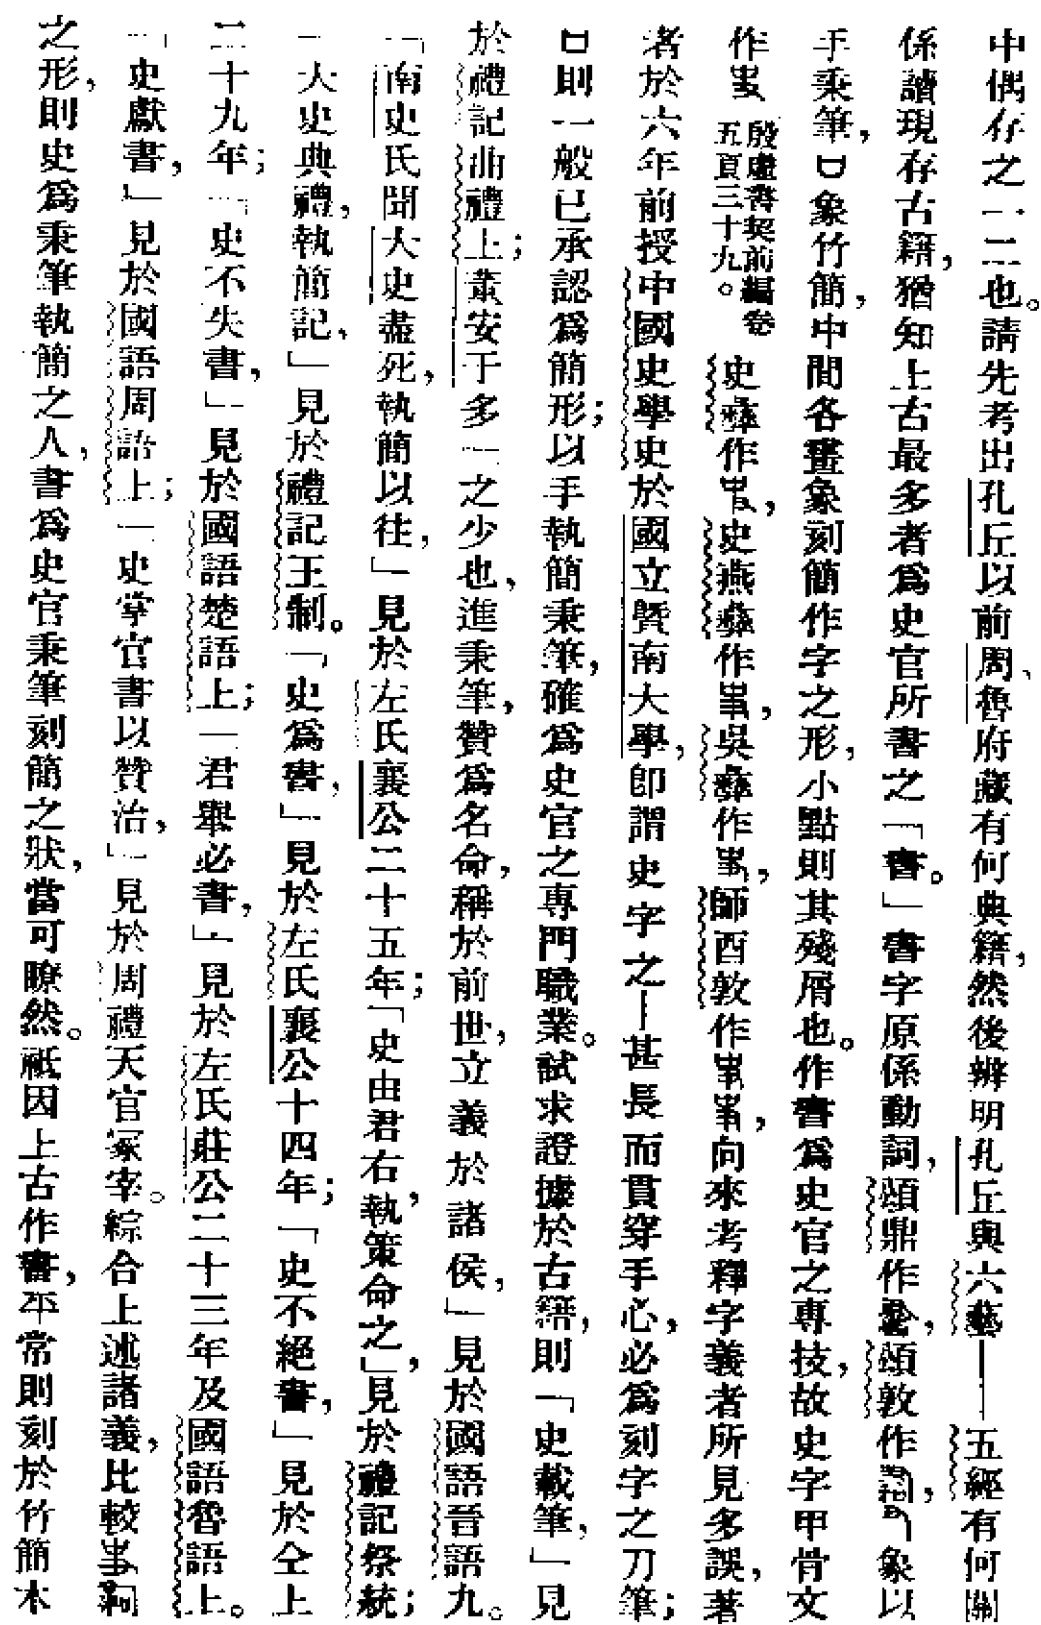 中偶存之一二也。請先考出孔丘以前周、魯府藏有何典籍，然後辨明孔丘與六藝——五經有何關
係讀現存古籍，猶知上古最多者爲史官所書之「書。」書字原係動詞，頌鼎作，頌敦作，象以
手秉筆，口象竹簡，中間各畫象刻簡作字之形，小點則其殘屑也。作書爲史官之專技，故史字甲骨文
作殷虛書契前編卷五頁三十九。史彝作，史燕彝作，吳彝作，師酉敦作，向來考釋字義者所見多誤，著
者於六年前授中國史學史於國立暨南大學，卽謂史字之｜甚長而貫穿手心，必爲刻字之刀筆；
口則一般已承認爲簡形；以手執簡秉筆，確爲史官之專門職業。試求證據於古籍，則「史載筆，」見
於禮記曲禮上；董安于多「之少也，進秉筆，贊爲名命，稱於前世，立義於諸侯，」見於國語晉語九。
「南史氏聞大史盡死，執簡以往，」見於左氏襄公二十五年；「史由君右，執策命之，」見於禮記祭統；
「大史典禮，執簡記，」見於禮記王制。「史爲書，」見於左氏襄公十四年；「史不絕書，」見於仝上
二十九年；「史不失書，」見於國語楚語上；「君舉必書，」見於左氏莊公二十三年及國語魯語上。
「史獻書，」見於國語周語上；「史掌官書以贊治，」見於周禮天官冢宰。綜合上述諸義，比較詞
之形，則史爲秉筆執簡之人，書爲史官秉筆刻簡之狀，當可瞭然。祇因上古作書，平常則刻於竹簡木